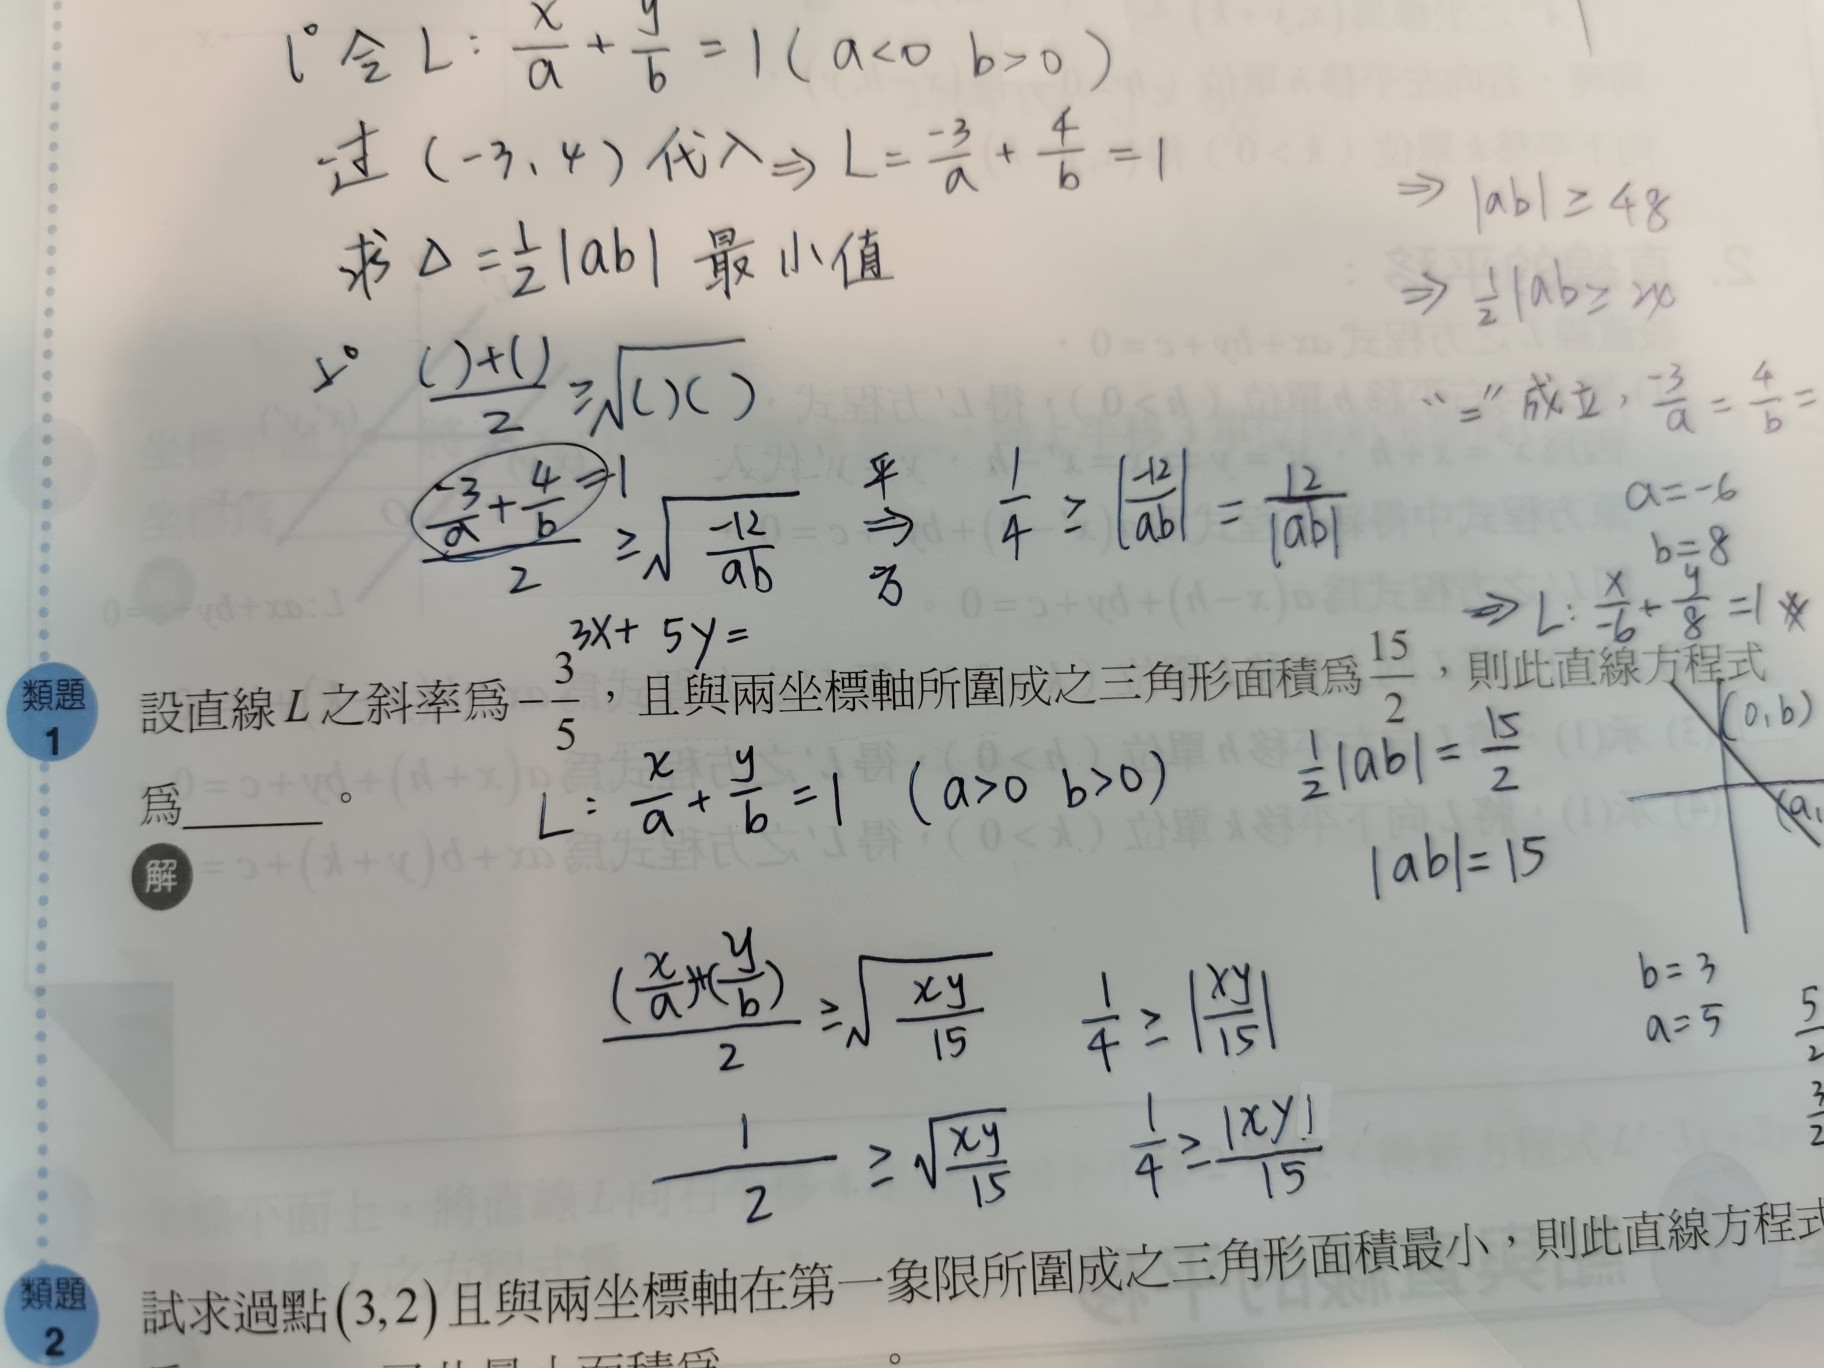 1° 令 L : x/a + y/b = 1 ( a<0 b>0 )
过 (-3, 4) 代入 ⇒ L = -3/a + 4/b = 1
求 △ = 1/2 |ab| 最小值
2° ( )+( ) / 2 ≥ √( )( )
(-3/a + 4/b) = 1 / 2 ≥ √(-12/ab) 平⇒方 1/4 ≥ |-12/ab| = 12/|ab|
⇒ |ab| ≥ 48
⇒ 1/2 |ab ≥ 24
"=" 成立, -3/a = 4/b =
a = -6
b = 8
⇒ L : x/-6 + y/8 = 1
3x + 5y =
類題 1
設直線 L 之斜率為 -3/5，且與兩坐標軸所圍成之三角形面積為 15/2，則此直線方程式
為______。
L : x/a + y/b = 1 ( a>0 b>0 )
1/2 |ab| = 15/2
|ab| = 15
(0, b)
(a,
解
(x/a)+(y/b) / 2 ≥ √(xy/15) 1/4 ≥ |xy/15|
b = 3
a = 5
5/2
3/2
1/2 ≥ √(xy/15) 1/4 ≥ |xy|/15
類題 2
試求過點 (3, 2) 且與兩坐標軸在第一象限所圍成之三角形面積最小，則此直線方程式